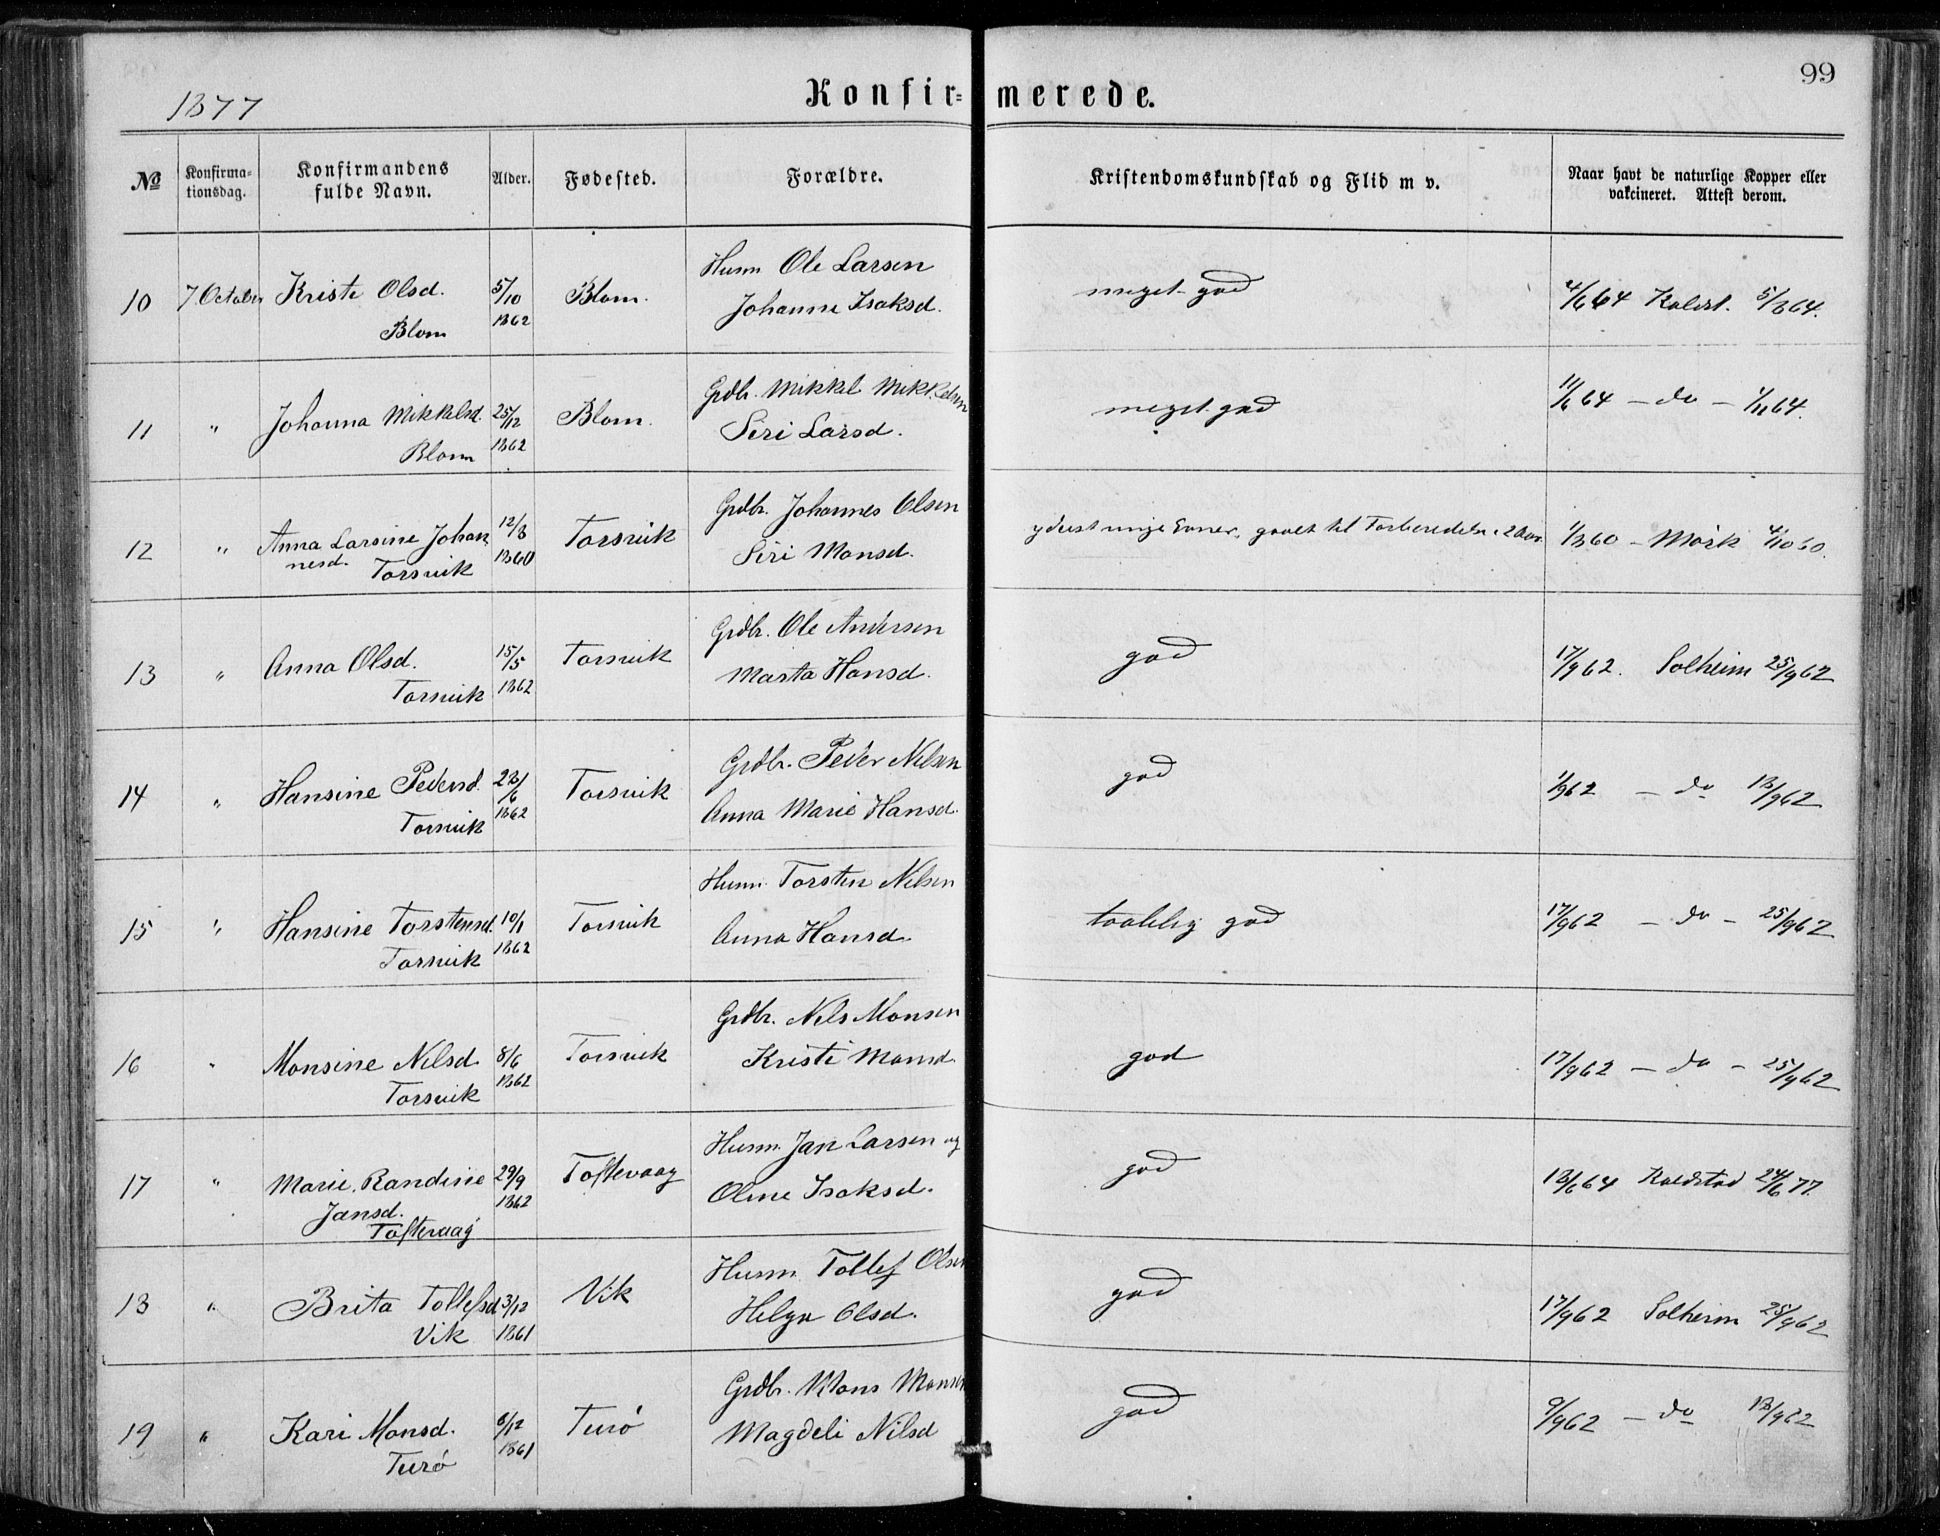 1877
Konfirmerede.
99
No Konfirmationsdag. Konfirmandens fulde Navn. Alder. Fødested. Forældre. Kristendomskundskab og Flid m v. Naar havt de naturlige Kopper eller vakcineret. Attest derom.
10 7 October Kristi Olsd. 5/10 Blom. Husm Ole Larsen meget god 4/6 64 Koldst. 5/8 64.
Blom 1862 Johanne Isaksd.
11 " Johanna Mikkelsd. 25/12 Blom. Grdbr. Mikkel Mikkelsen meget god 11/6 64 – do – 1/11 64.
Blom 1862 Siri Larsd.
12 " Anna Larsine Johan 12/8 Torsvik Grdbr. Johannes Olsen yderst ringe Evner, gaaet til Forberedelse i 2 Aar. 1/8 60 – Mørk 4/10 60.
nesd. Torsvik 1860 Siri Monsd.
13 " Anna Olsd. 15/5 Torsvik Grdbr. Ole Andersen god 17/9 62. Solheim 25/9 62
Torsvik 1862 Marta Hansd.
14 " Hansine Pedersd. 28/6 Torsvik Grdbr. Peder Nilsen god 1/9 62 – do 18/9 62
Torsvik 1862 Anna Marie Hansd.
15 " Hansine Torstensd. 10/1 Torsvik Husm. Torsten Nilsen taalelig god 17/9 62 – do – 25/9 62
Torsvik 1862 Anna Hansd.
16 " Monsine Nilsd. 8/6 Torsvik Grdbr. Nils Monsen god 17/9 62 – do – 25/9 62
Torsvik 1862 Kristi Monsd.
17 " Marie Randine 29/9 Toftevaag Husm. Jan Larsen og god 18/6 64 Koldstad 24/6 77.
Jansd. 1862 Oline Isaksd.
Toftevaag
18 " Brita Tollefsd 3/12 Vik Husm. Tollef Olsen god 17/9 62 Solheim 25/9 62
Vik 1861 Helga Olsd.
19 " Kari Monsd. 8/12 Turø Grdbr. Mons Monsen god 9/9 62 – do 18/9 62
Turø 1861 Magdeli Nilsd